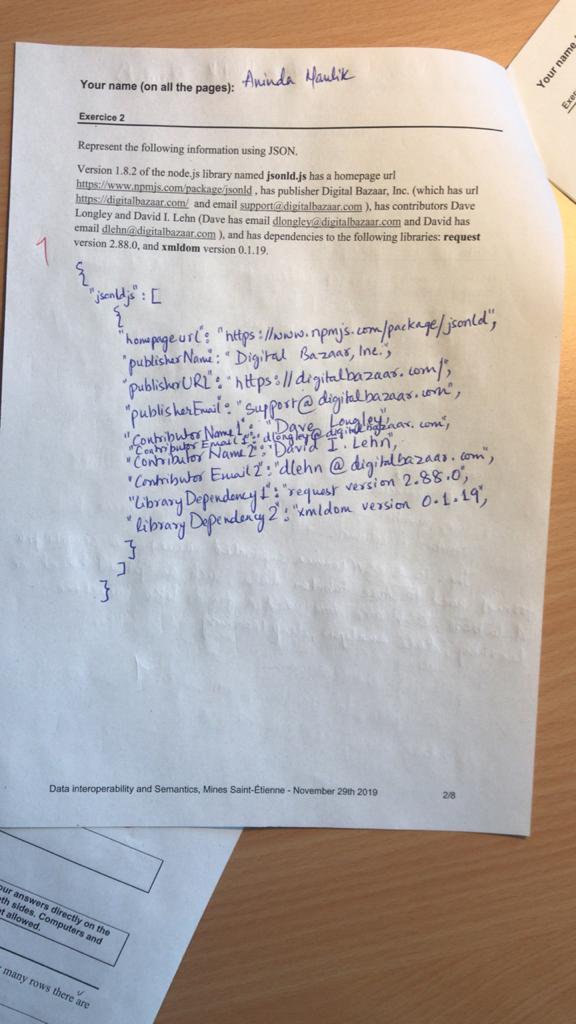 Your name (on all the pages): Aninda Maulik
Exercice 2
Represent the following information using JSON.
Version 1.8.2 of the node.js library named jsonld.js has a homepage url
https://www.npmjs.com/package/jsonld , has publisher Digital Bazaar, Inc. (which has url
https://digitalbazaar.com/ and email support@digitalbazaar.com ), has contributors Dave
Longley and David I. Lehn (Dave has email dlongley@digitalbazaar.com and David has
email dlehn@digitalbazaar.com ), and has dependencies to the following libraries: request
version 2.88.0, and xmldom version 0.1.19.
1
{
"jsonldjs" : [
{
"homepage url": "https://www.npmjs.com/package/jsonld",
"publisherName: "Digital Bazaar, Inc.",
"publisherURL": "https://digitalbazaar.com/",
"publisherEmail": "support@digitalbazaar.com",
"Contributor Name1": "Dave Longley",
"Contributor Email1": "dlongley@digitalbazaar.com",
"Contributor Name2": "David I. Lehn",
"Contributor Email2": "dlehn@digitalbazaar.com",
"Library Dependency1": "request version 2.88.0",
"library Dependency2": "xmldom version 0.1.19",
}
]
}
Data interoperability and Semantics, Mines Saint-Étienne - November 29th 2019
2/8
Your name
Exer
our answers directly on the
th sides. Computers and
t allowed.
many rows there are